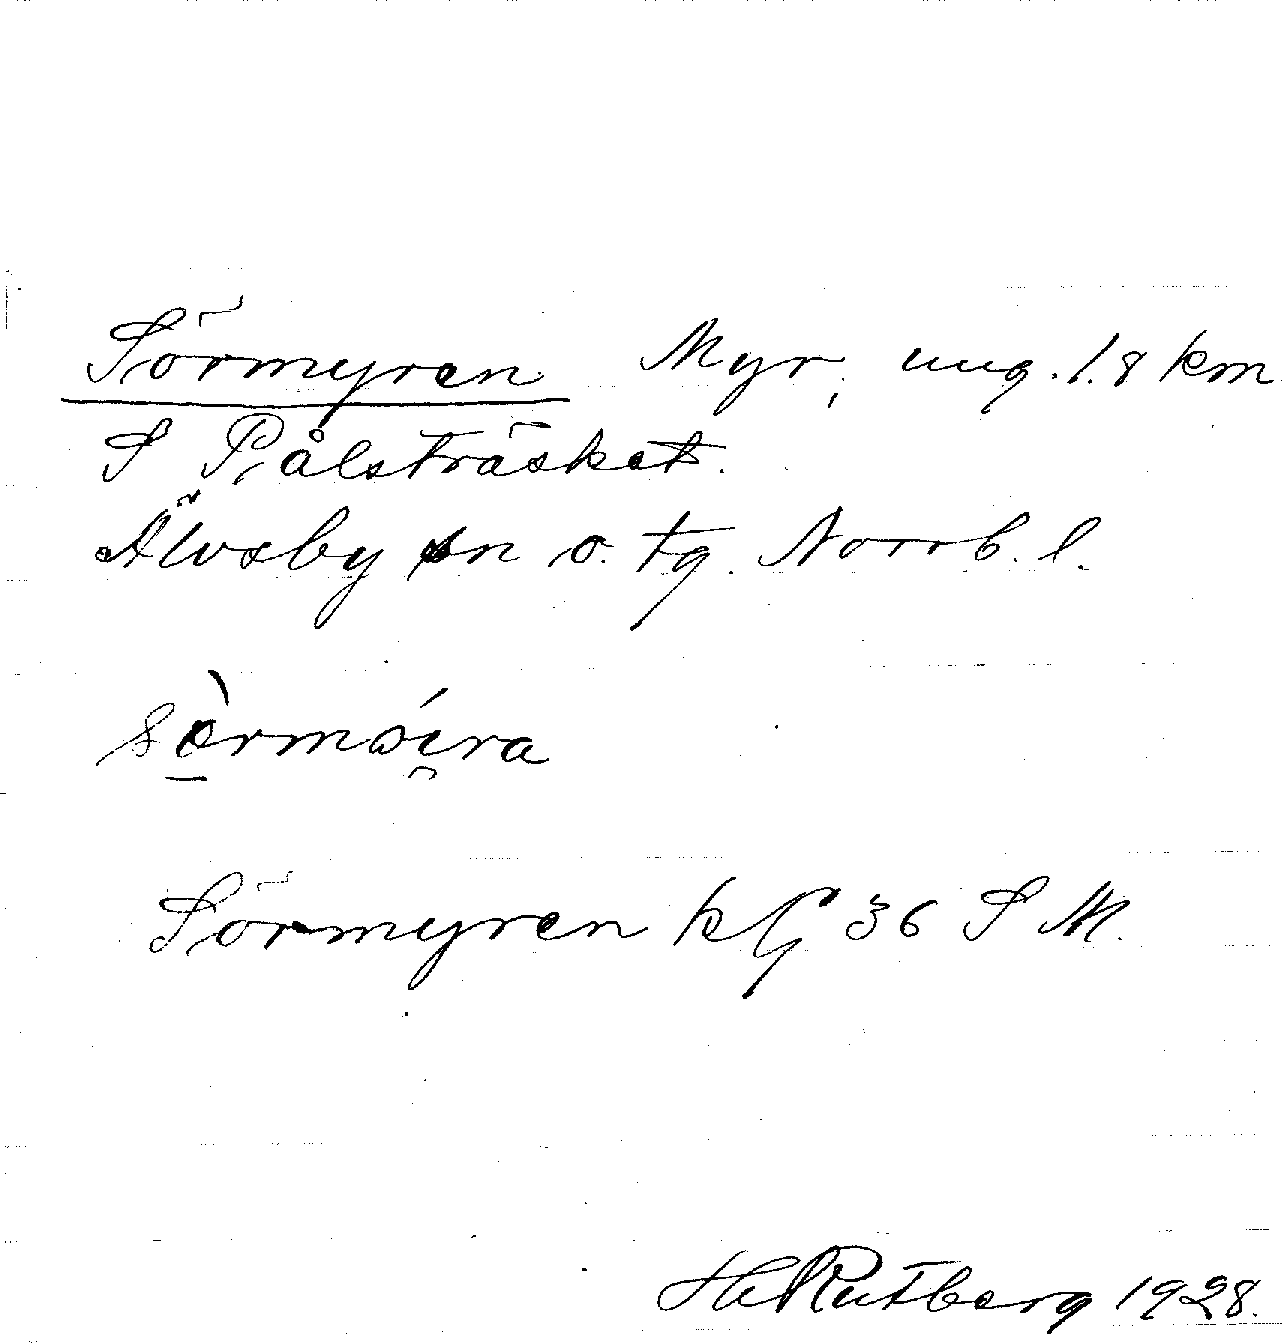 Sörmyren Myr, ung. 1.8 km
S Pålsträsket.
Älvsby sn o. tg. Norrb. l.
sörmöira
Sörmyren kG 36 S M.
Hs Rutberg 1928.